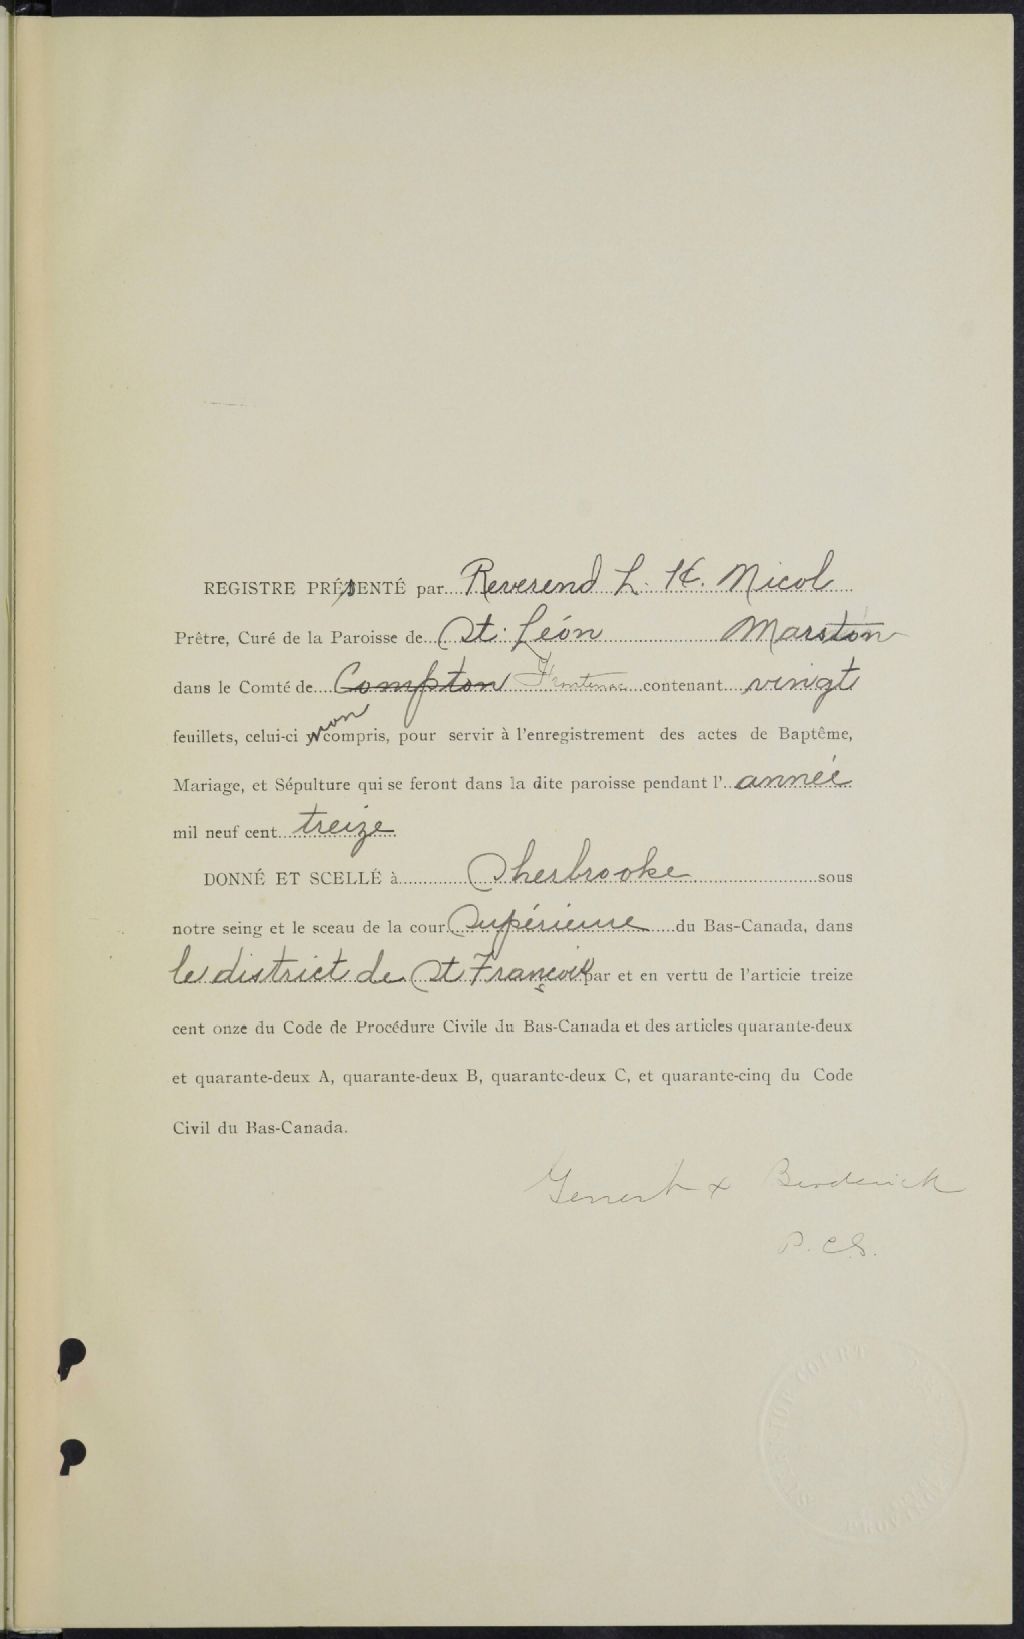 REGISTRE PRÉSENTÉ par Reverend L. H. Nicol
Prêtre, Curé de la Paroisse de St. Léon Marston
dans le Comté de Compton Frontenac contenant vingt
feuillets, celui-ci non compris, pour servir à l'enregistrement des actes de Baptême,
Mariage, et Sépulture qui se feront dans la dite paroisse pendant l'année
mil neuf cent treize
DONNÉ ET SCELLÉ à Sherbrooke sous
notre seing et le sceau de la cour Supérieure du Bas-Canada, dans
le district de St François par et en vertu de l'articie treize
cent onze du Code de Procédure Civile du Bas-Canada et des articles quarante-deux
et quarante-deux A, quarante-deux B, quarante-deux C, et quarante-cinq du Code
Civil du Bas-Canada.
& Broderick
P. C. S.
COURT
PROVINCE